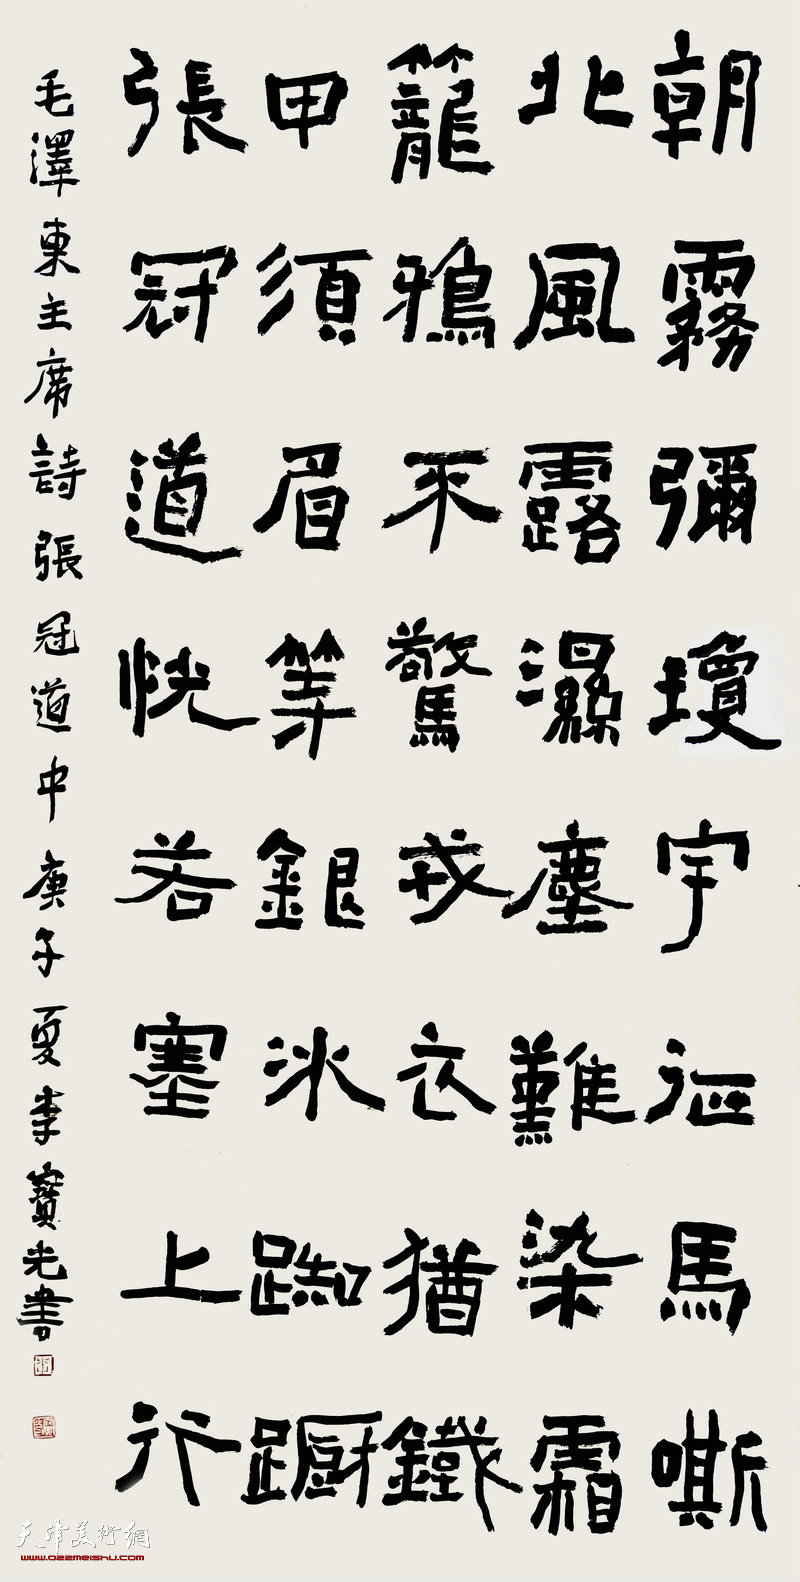 朝霧彌瓊宇征馬嘶
北風露濕塵難染霜
籠鴉不驚戎衣猶鐵
甲須眉等銀冰踟蹰
張冠道快若塞上行
毛澤東主席詩張冠道中庚子夏李寶光書
天津美術網
www.022meishu.com